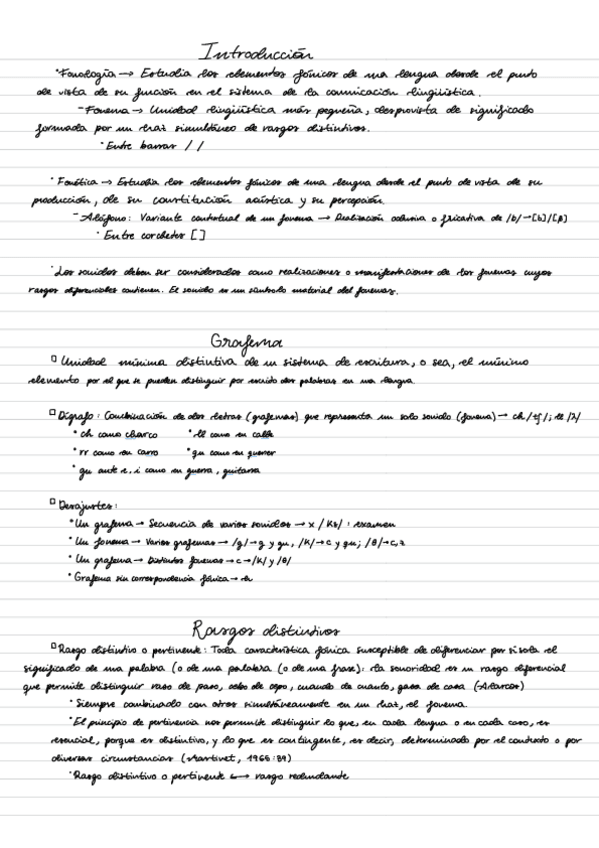 Introducción
• Fonología → Estudia los elementos fónicos de una lengua desde el punto
de vista de su función en el sistema de la comunicación lingüística.
- Fonema → Unidad lingüística más pequeña, desprovista de significado
formada por un haz simultáneo de rasgos distintivos.
• Entre barras / /
• Fonética → Estudia los elementos fónicos de una lengua desde el punto de vista de su
producción, de su constitución acústica y su percepción.
- Alófono: Variante contextual de un fonema → Realización oclusiva o fricativa de /b/→[b]/[β]
• Entre corchetes []
• Los sonidos deben ser considerados como realizaciones o manifestaciones de los fonemas cuyos
rasgos diferenciales contienen. El sonido es un símbolo material del fonema.
Grafema
□ Unidad mínima distintiva de un sistema de escritura, o sea, el mínimo
elemento por el que se pueden distinguir por escrito dos palabras en una lengua.
□ Dígrafo: Combinación de dos letras (grafemas) que representa un solo sonido (fonema) → ch /tʃ/; ll /ʎ/
• ch como charco • ll como en calle
• rr como en carro • qu como en querer
• gu ante e, i como en guerra, guitarra
□ Desajustes:
• Un grafema → Secuencia de varios sonidos → x /ks/: examen
• Un fonema → Varios grafemas → /g/→g y gu, /k/→c y qu; /θ/→c,z
• Un grafema → Distintos fonemas → c → /k/ y /θ/
• Grafema sin correspondencia fónica → h
Rasgos distintivos
□ Rasgo distintivo o pertinente: Toda característica fónica susceptible de diferenciar por sí sola el
significado de una palabra (o de una palabra (o de una frase): la sonoridad es un rasgo diferencial
que permite distinguir vaso de paso, de cuando de cuanto, gasa de casa (Alarcos)
• Siempre combinado con otros simultáneamente en un haz, el fonema.
• El principio de pertinencia nos permite distinguir lo que, en cada lengua o en cada caso, es
esencial, porque es distintivo, y lo que es contingente, es decir, determinado por el contexto o por
diversas circunstancias (Martinet, 1965:89)
• Rasgo distintivo o pertinente ↔ rasgo redundante